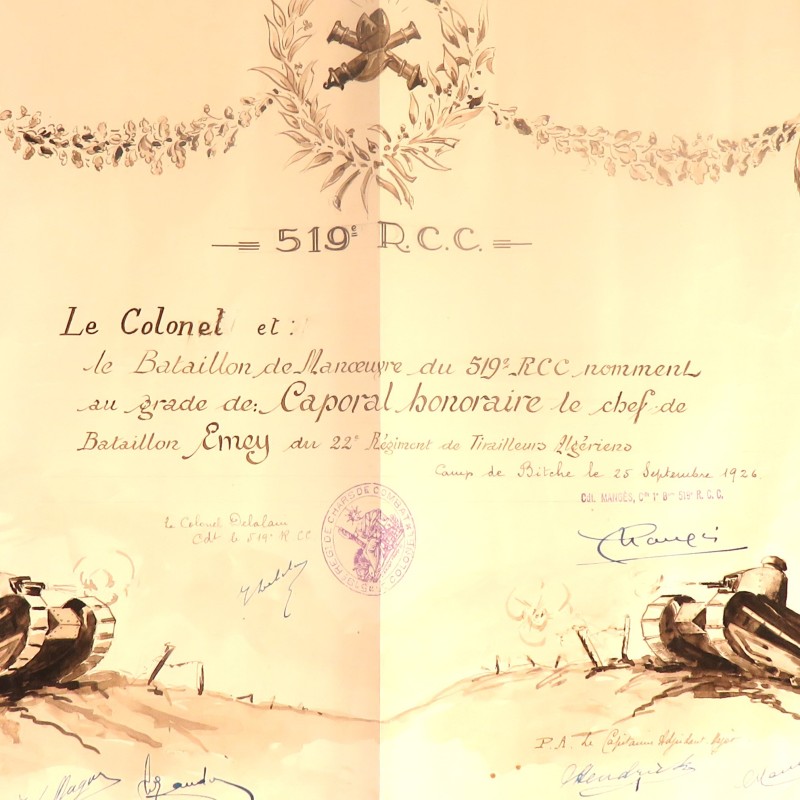 519e R.C.C.
Le Colonel et:
le Bataillon de Manœuvre du 519e RCC nomment
au grade de: Caporal honoraire le chef de
Bataillon Emey du 22e Régiment de Tirailleurs Algériens
Camp de Bitche le 25 Septembre 1926
COL. MANGÈS, Cm 1er Bon 519e R. C. C.
Le Colonel Delalain
Cdt le 519e R CC
519E REG. DE CHARS DE COMBAT
Mangès
P.A. Le Capitaine Adjudant
Hendrick